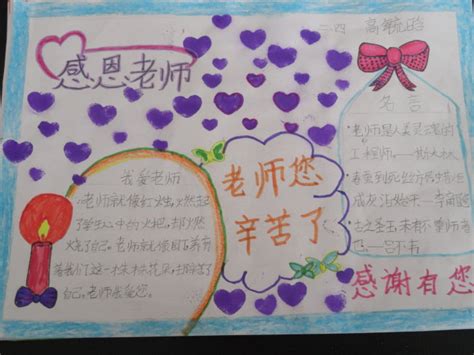 二四
感恩老师
名言
·老师是人类灵魂的
工程师。——斯大林
·春蚕到死丝方尽
成灰泪始干——李商隐
·古之圣王,未有不尊师者
也——吕不韦
感谢有您
老师您
辛苦了
我爱老师
老师就像红火烛,燃起
了学生心中的火把,却燃
烧了自己。老师就像
着我们这一朵朵花朵,却辛苦了
自己。老师